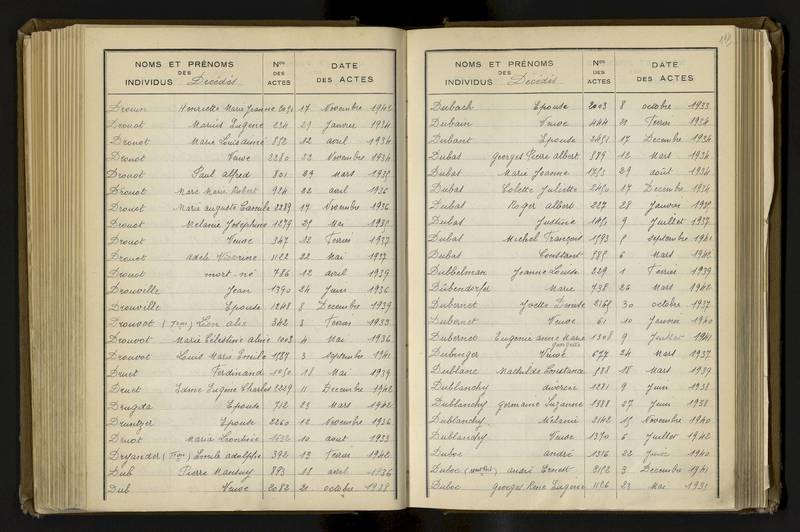 NOMS ET PRÉNOMS DES INDIVIDUS Décédés Nos DES ACTES DATE DES ACTES
Drouin Henriette Marie Jeanne 2090 17 Novembre 1942
Drouot Marius Eugène 234 29 Janvier 1934
Drouot Marie Louis 852 12 avril 1934
Drouot Veuve 2280 22 Novembre 1934
Drouot Paul alfred 801 29 Mars 1935
Drouot Marc Marie Robert 924 22 avril 1936
Drouot Marie auguste Camille 2239 17 Novembre 1936
Drouot Melanie Joséphine 1279 25 Mai 1935
Drouot Veuve 347 12 Fevrier 1937
Drouot adele 1122 22 Mai 1937
Drouot mort-né 786 12 avril 1939
Drouville Jean 1390 24 Juin 1936
Drouville Epouse 1248 8 Decembre 1939
Drouvot Léon 342 3 Fevrier 1933
Drouvot Marie Célestine 1003 4 Mai 1936
Drouvot Louis Marie Emile 1787 3 septembre 1941
Druet Ferdinand 1050 18 Mai 1939
Druet Eugène Charles 2229 11 Decembre 1942
Drugda Epouse 712 23 Mars 1942
Epouse 2260 12 Novembre 1936
Druot Maria Léontine 1632 10 aout 1933
Dryander Emile adolphe 392 13 Fevrier 1942
Dub Pierre 893 18 avril 1936
Dub Veuve 2082 21 octobre 1938
NOMS ET PRÉNOMS DES INDIVIDUS Décédés Nos DES ACTES DATE DES ACTES
Dubach Epouse 2003 8 octobre 1933
Dubain Veuve 444 21 Fevrier 1934
Dubant Epouse 2451 17 Decembre 1934
Dubas Georges Pierre albert 589 12 Mars 1934
Dubas Marie Jeanne 1753 29 août 1934
Dubas Colette Juliette 2450 17 Decembre 1934
Dubas Roger albert 227 28 Janvier 1935
Dubas Justine 1453 9 Juillet 1937
Dubas Michel François 1793 5 septembre 1941
Dubas Constant 585 6 Mars 1942
Dubbelman Jeanne Louise 229 1 Fevrier 1939
Dübendorfer Marie 738 26 Mars 1942
Dubernet Yvette Denise 2165 30 octobre 1937
Dubernet Veuve 61 10 Janvier 1940
Dubernet Eugenie anne Marie 1308 9 Juillet 1941
Dubinger Veuve 677 24 Mars 1937
Dublanc Mathilde Constance 138 18 Mars 1939
Dublanchy divorcée 1281 9 Juin 1938
Dublanchy Germaine Suzanne 1388 27 Juin 1938
Dublanchy Melanie 2142 15 Novembre 1940
Dublanchy Veuve 1370 6 Juillet 1942
Duboc andré 1316 22 Juin 1940
Duboc andré Ernest 2152 3 Decembre 1941
Duboc Georges René Eugène 1126 23 Mai 1935